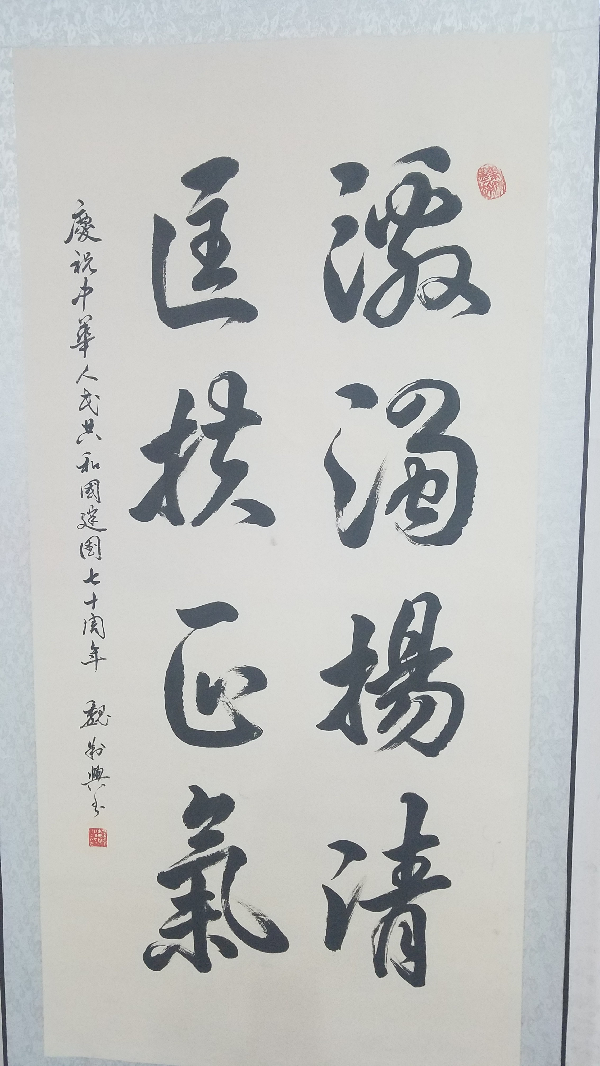 激濁揚清
匡扶正氣
慶祝中華人民共和國建國七十周年 魏